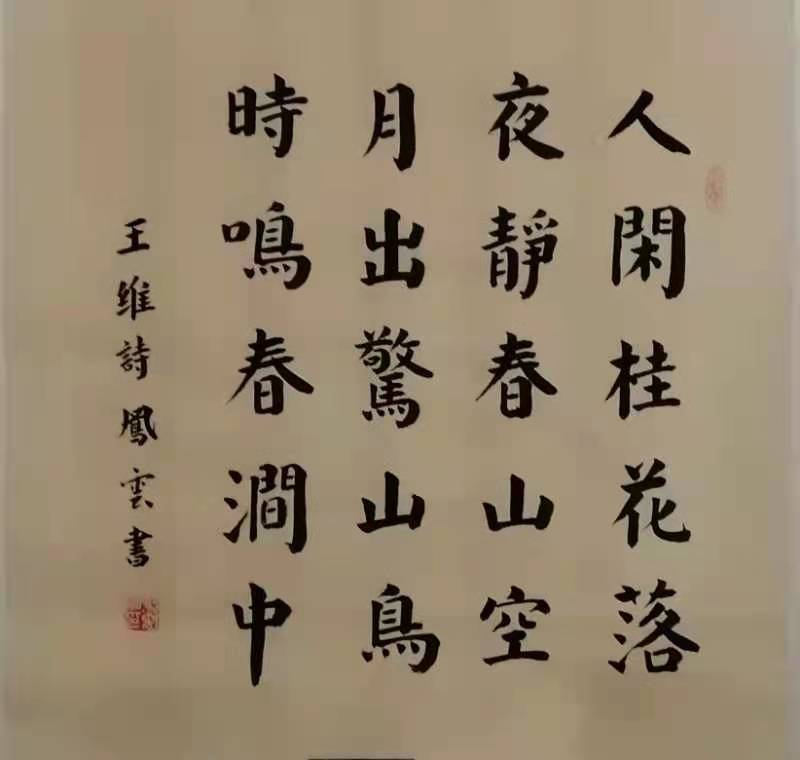 人閑桂花落
夜靜春山空
月出驚山鳥
時鳴春澗中
王維詩鳳雲書